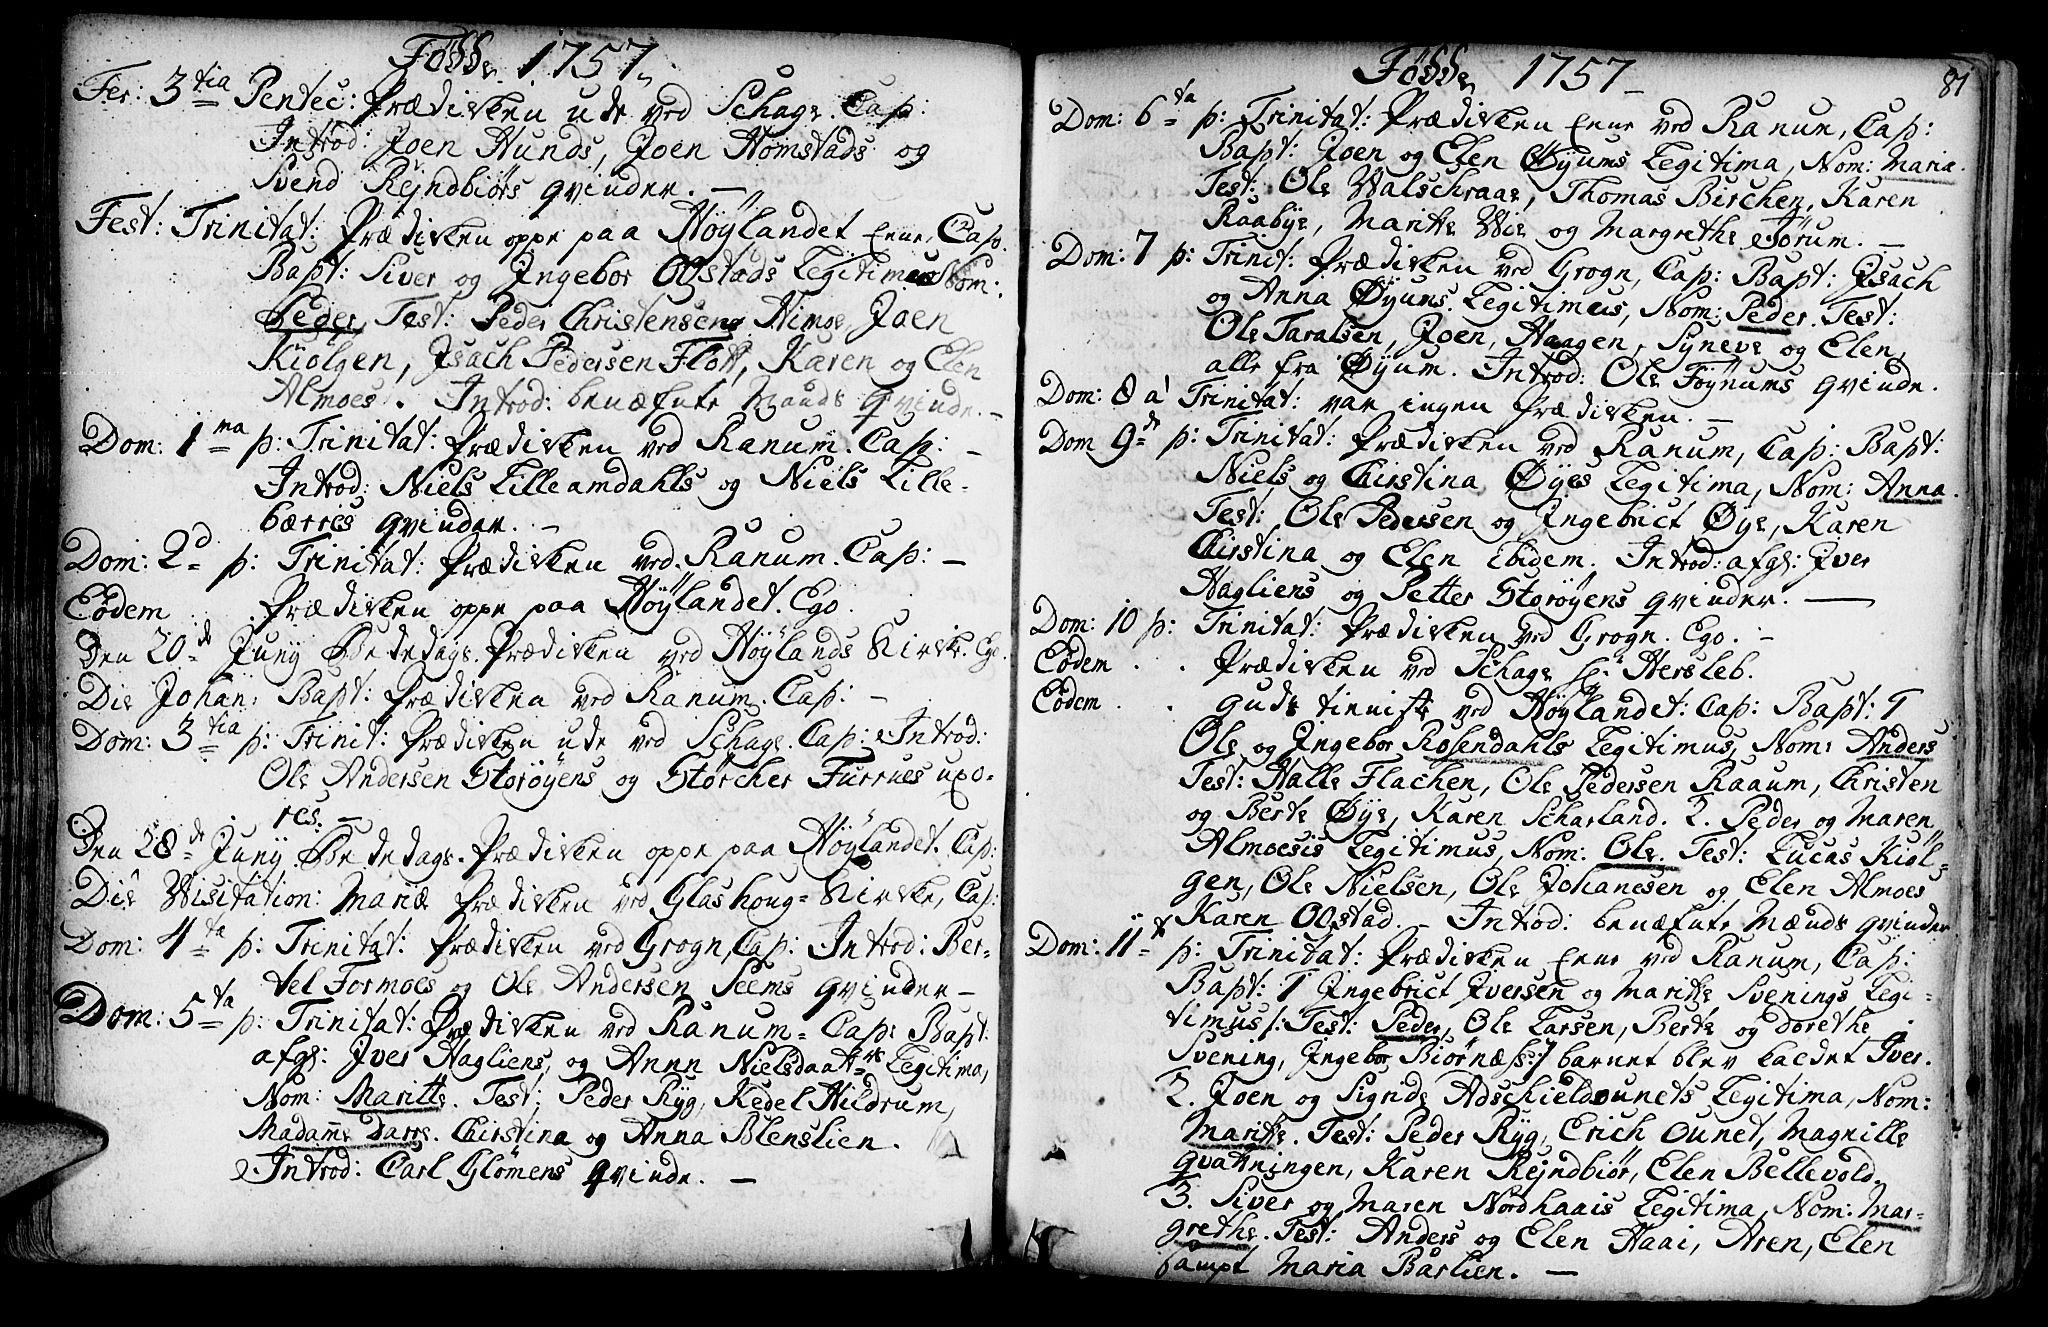 Födde 1757
Fer: 3 tia Pentec: Prædicken ude ved Schage. Cap:
Introd: Joen Hunds, Joen Homstads og
Svend Rejndbiørs qvinder. —
Fest: Trinitat: Prædicken oppe paa Höÿlandet Ene, Cap.
Bapt: Siver og Ingebor Ogstads Legitimus Nom:
Peder, Test: Peder Christensens Almoe, Joen
Kiolgen, Isach Pedersen Flott, Karen og Elen
Almoes. Introd: benæfnte Mands qvinde. —
Dom: 1 ma p: Trinitat: Prædicken ved Ranum. Cap: —
Introd: Niels Lilleamdahls og Niels Lille-
bærres qvinder. —
Dom: 2 d p: Trinitat: Prædicken ved Ranum. Cap: —
Eodem . Prædicken oppe paa Höÿlandet. Ego.
Den 20 de Junÿ Bededags. Prædicken ved Höÿlands Kirke. Ego.
Die Johan: Bapt: Prædicken ved Ranum. Cap: —
Dom: 3 tia p: Trinit: Prædicken ude ved Schage. Cap: Introd:
Ole Andersen Storöÿens og Störcher Furrues uxo-
res. —
Den 28 de Junÿ Bededags. Prædicken oppe paa Höÿlandet. Cap:
Die Visitation: Mariæ Prædicken ved Glashoug= Kirke, Cap:
Dom: 4 ta p: Trinitat: Prædicken ved Grogn, Cap: Introd: Ber-
tel Formoes og Ole Andersen Seems qvinder —
Dom: 5 ta p: Trinitat: Prædicken ved Ranum= Cap: Bapt:
afgl: Iver Hagliens, og Anna Nielsdaatrs Legitima,
Nom: Maritte. Test: Peder Ryg, Kedel Hildrum,
Madame Darre. Chirstina og Anna Blenslien.
Introd: Carl Glömens qvinde. —
Födde 1757 —
81
Dom: 6 ta p: Trinitat: Prædicken Ene ved Ranum, Cap:
Bapt: Joen og Elen Øÿums Legitima, Nom: Maria.
Test: Ole Walschraae, Thomas Berchen, Karen
Raabÿe, Maritte Wie og Margrethe Jörum. —
Dom: 7 p: Trinit: Prædicken ved Grogn, Cap: Bapt: Isach
og Anna Øÿums Legitimus, Nom: Peder. Test:
Ole Taralsen, Joen, Haagen, Syneve og Elen,
alle fra Øÿum. Introd: Ole Föÿnums qvinde.
Dom: 8 a Trinitat: var ingen Prædicken. —
Dom 9 de p: Trinitat: Prædicken ved Ranum, Cap: Bapt:
Niels og Chirstina Øÿes Legitima, Nom: Anna.
Test: Ole Pedersen og Ingebrict Øÿe, Karen
Chirstina og Elen Ebidem. Introd: afgl: Iver
Hagliens og Petter Storöÿens qvinder. —
Dom: 10 p: Trinitat: Prædicken ved Grogn. Ego. —
Eodem . . Prædicken ved Schage Hersleb.
Eodem . . Guds tieniste ved Höÿlandet: Cap: Bapt: 1
Ole og Ingebor Rosendahls Legitimus, Nom: Anders
Test: Halle Flachen, Ole Pedersen Raaum, Christen
og Berte Øÿe, Karen Scharland. 2. Peder og Maren
Almoesis Legitimus, Nom: Ole. Test: Lucas Kiöl-
gen, Ole Nielsen, Ole Johanesen og Elen Almoes
Karen Ogstad. — Introd: benæfnte Mænds qvinder
Dom: 11 p: Trinitat: Prædicken Ene ved Ranum, Cap:
Bapt: 1 Ingebrict Iversen og Maritte Svenings Legi-
timus /: Test: Peder, Ole Larsen, Berte og dorethe
Svening, Ingebor Biörnæss:/ barnet blev kaldet Iver.
2. Joen og Signde Adschieldounets Legitima, Nom:
Maritte. Test: Peder Ryg, Erich Ounet, Magnille
qvatningen, Karen Rejndbiör, Elen Bellevold.
3. Siver og Maren Nordhaais Legitima, Nom: Mar-
grethe. Test: Anders og Elen Haai, Aren, Elen
sampt Maria Barlien. —